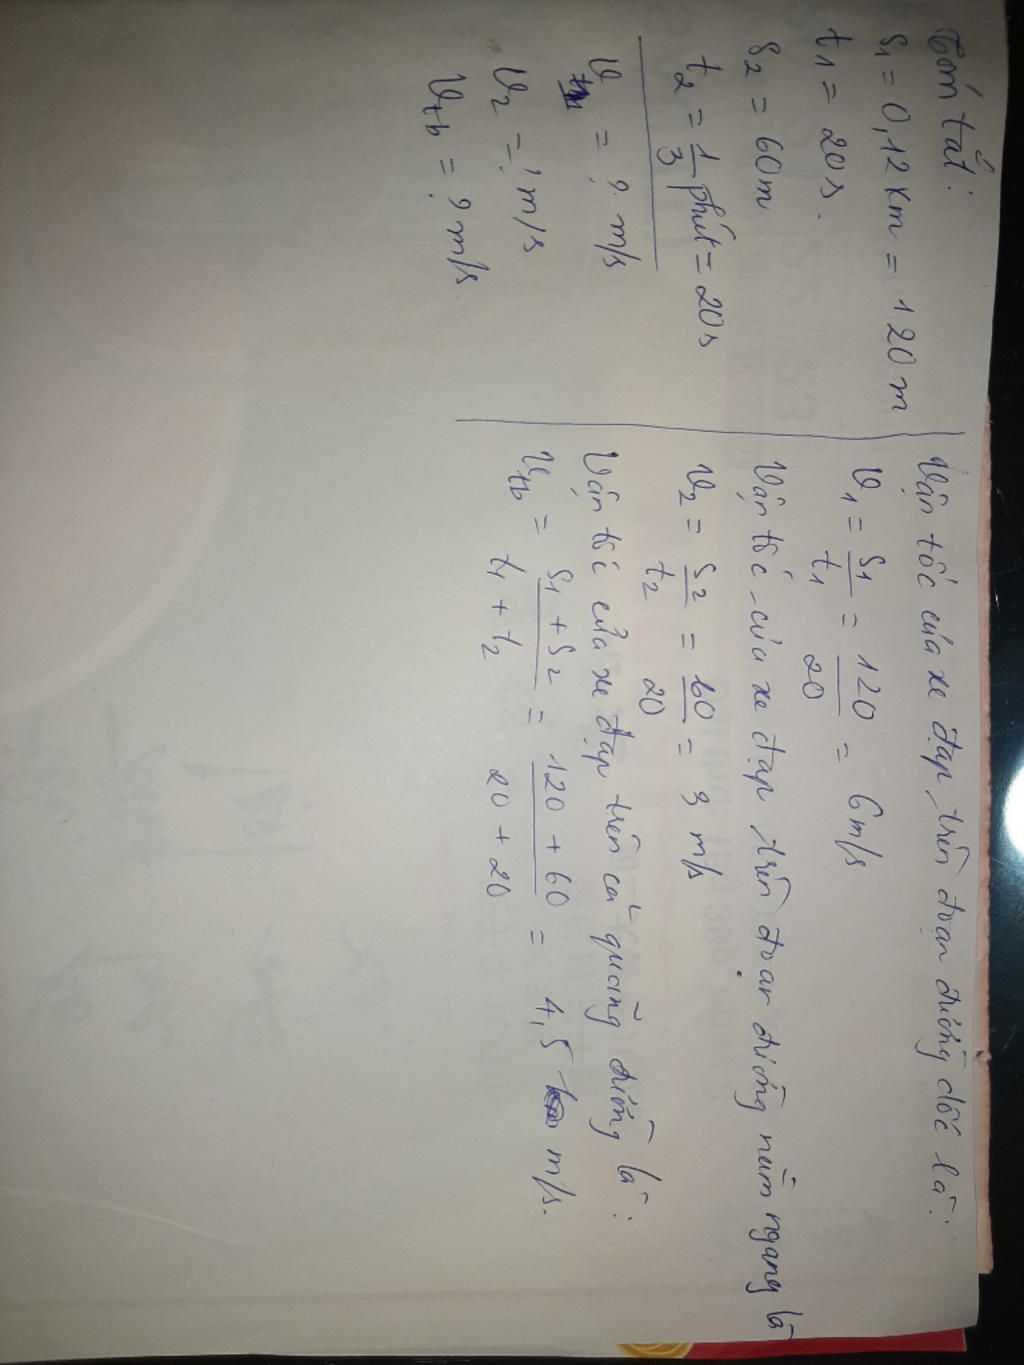 Tóm tắt:
s1 = 0,12 km = 120 m
t1 = 20s.
s2 = 60m
t2 = 1/3 phút = 20s
v = ? m/s
v2 = ? m/s
vtb = ? m/s.
Vận tốc của xe đạp trên đoạn đường dốc là:
v1 = s1/t1 = 120/20 = 6 m/s
Vận tốc của xe đạp trên đoạn đường nằm ngang là
v2 = s2/t2 = 60/20 = 3 m/s
Vận tốc của xe đạp trên cả quãng đường là:
vtb = s1 + s2/t1 + t2 = 120 + 60/20 + 20 = 4,5 m/s.